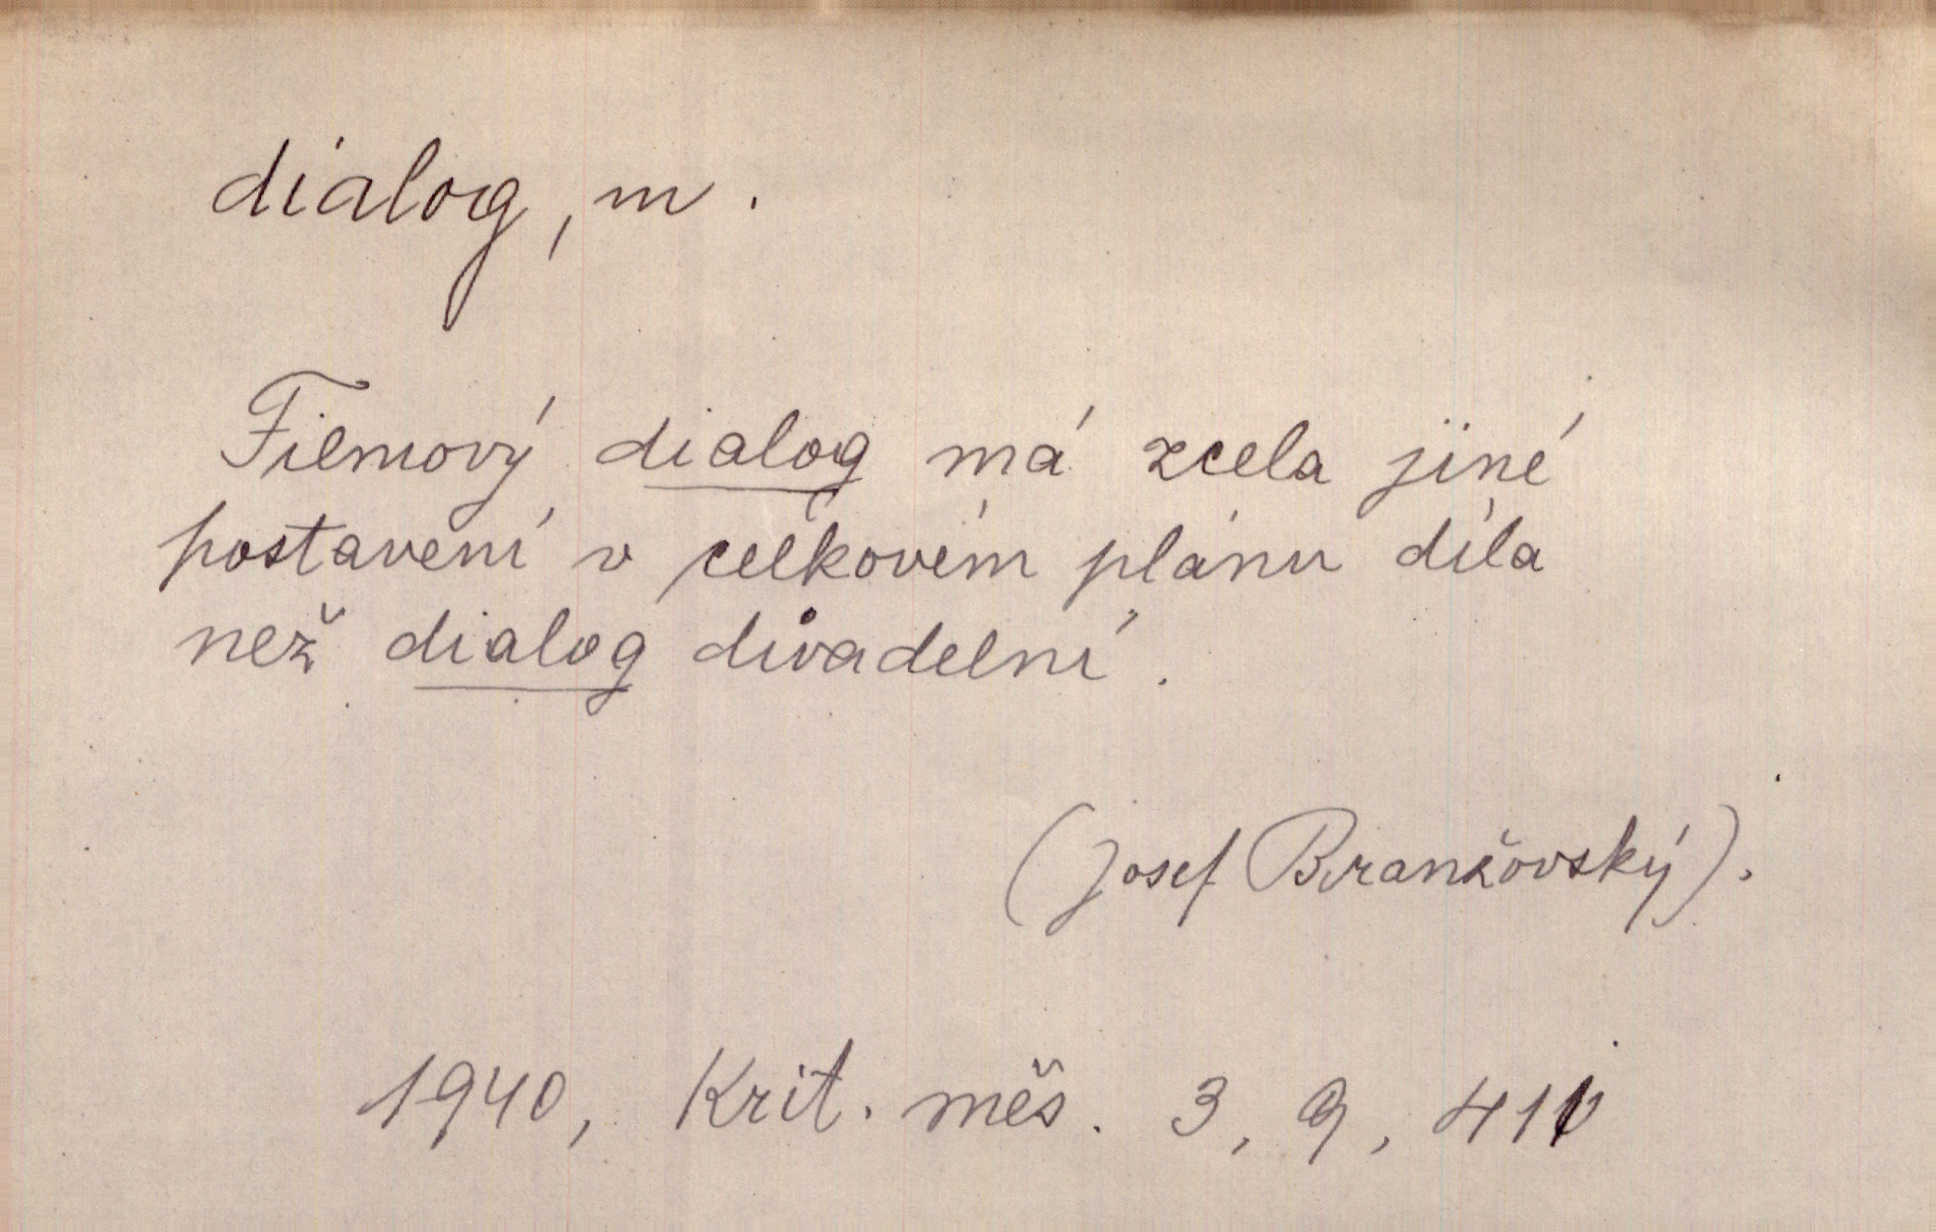 dialog, m.
Filmový dialog má zcela jiné
postavení v celkovém plánu díla
než dialog divadelní.
(Josef Branžovský).
1940, Krit. měs. 3, 9, 411